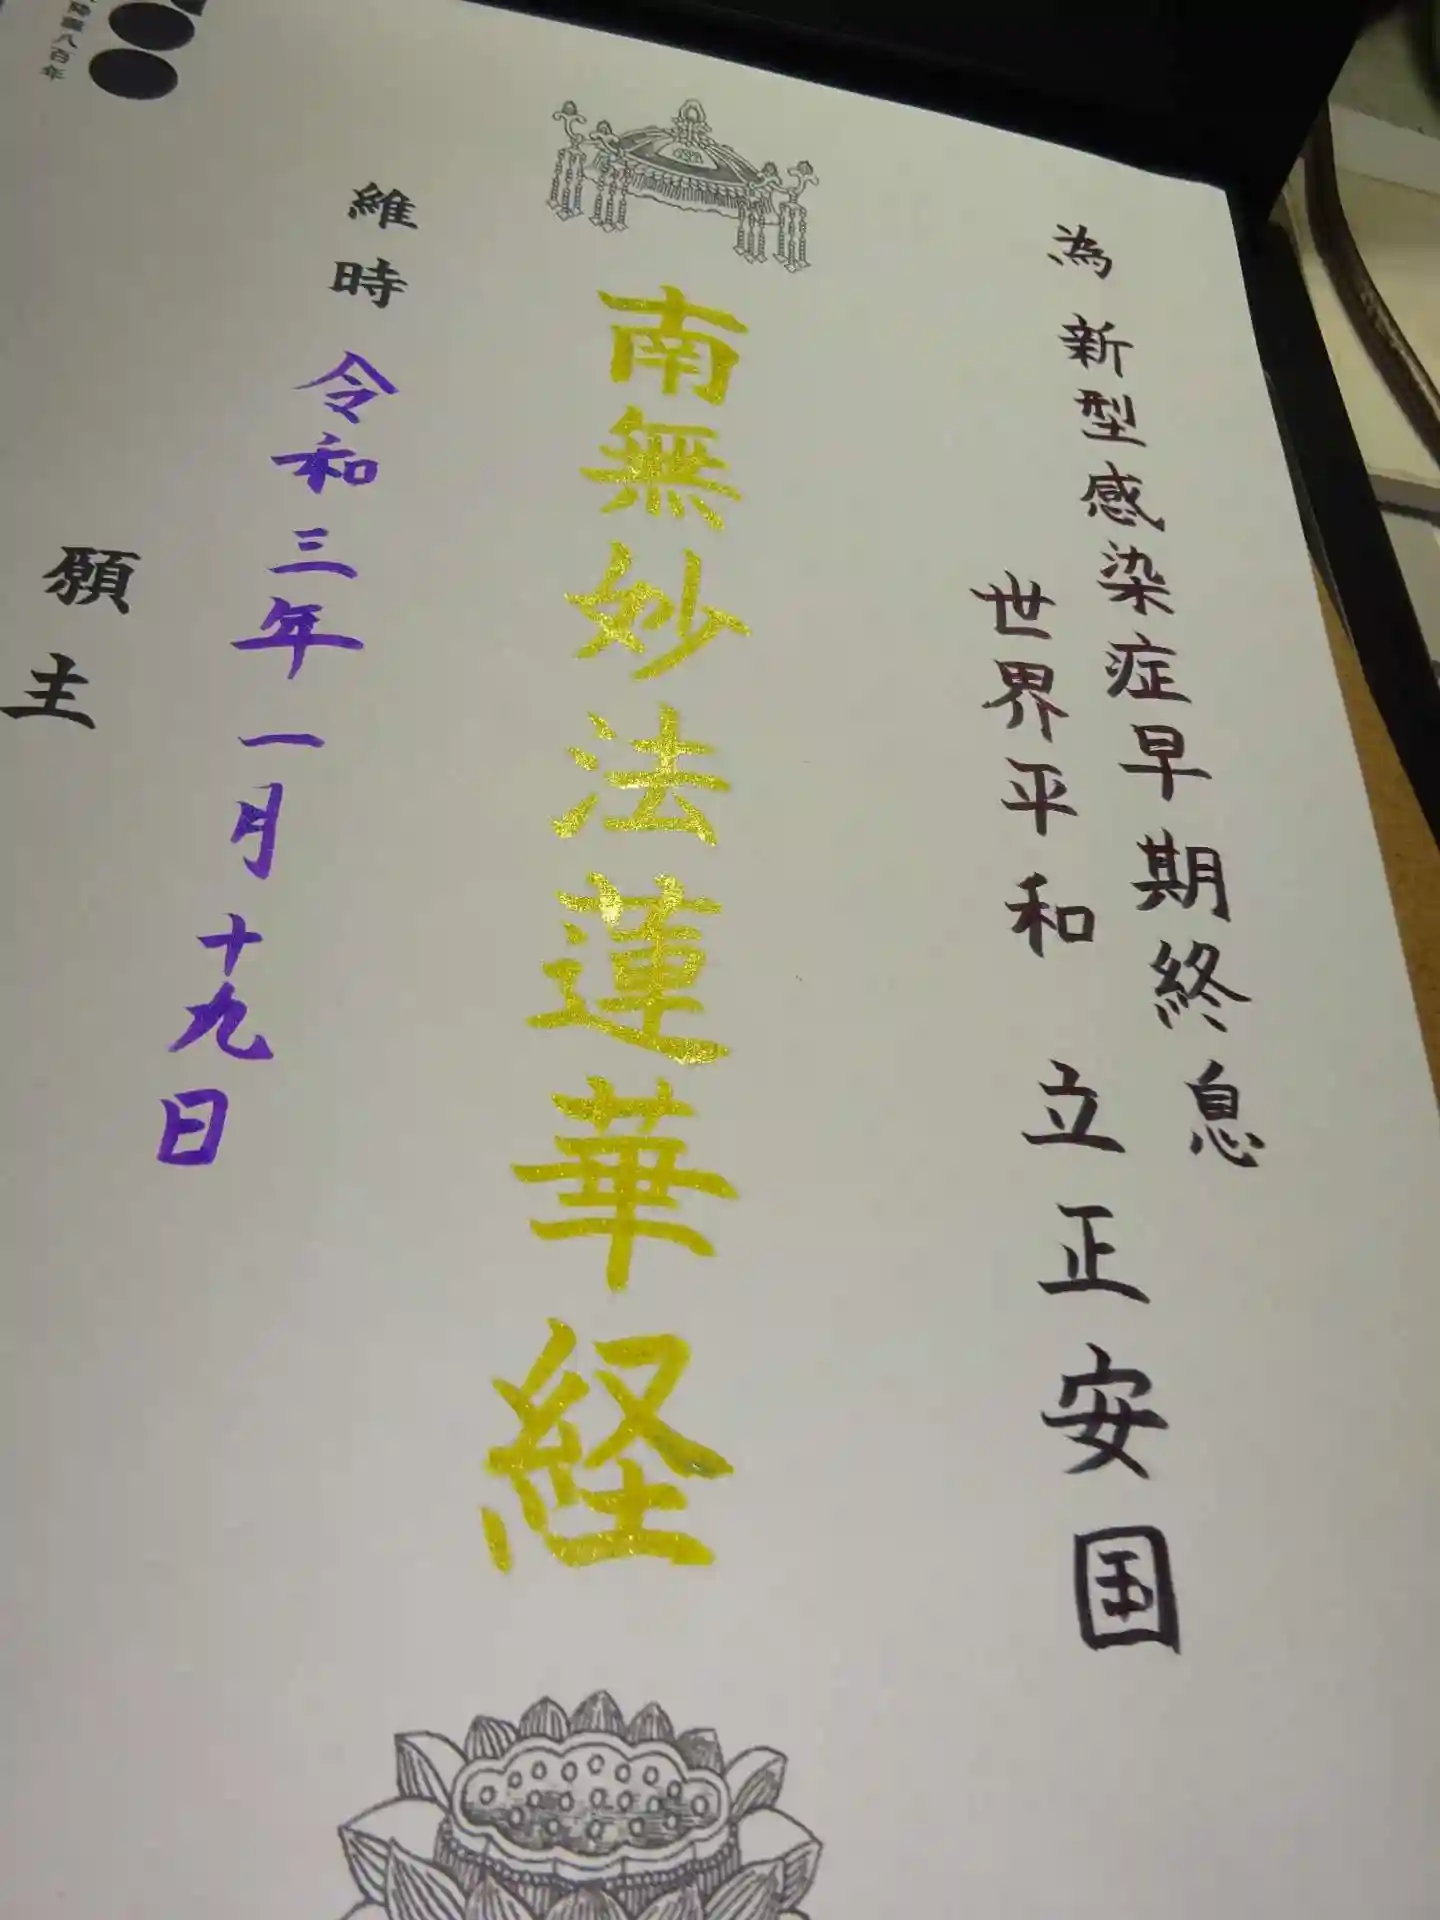 為 新型感染症早期終息
世界平和 立正安国
南無妙法蓮華経
維時 令和三年一月十九日
願主
八百年